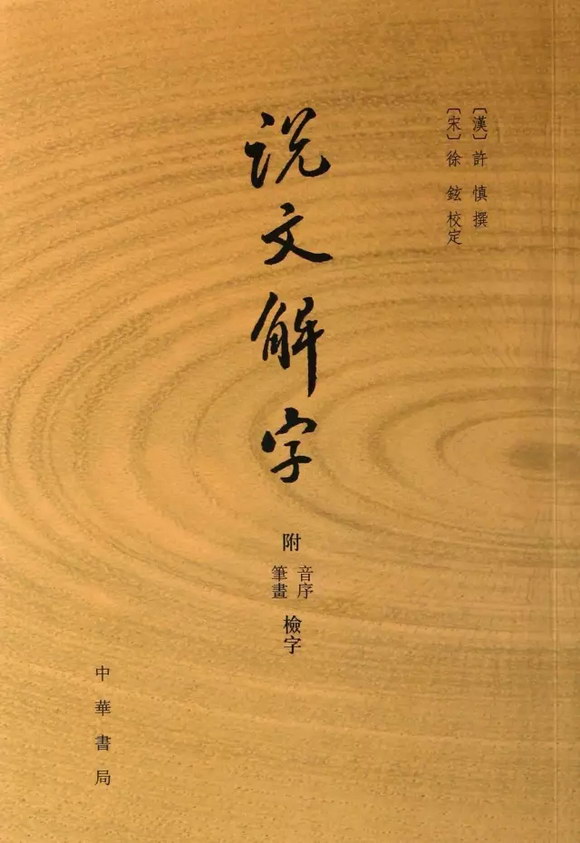 〔漢〕許 慎 撰
〔宋〕徐 鉉 校定
説文解字
附
音序
筆畫
檢字
中華書局